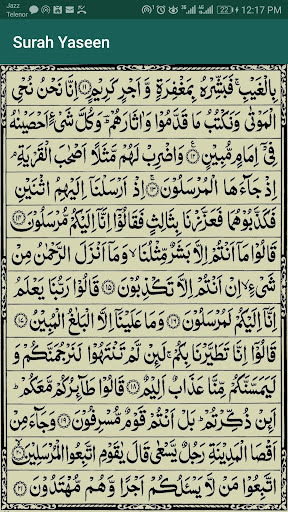 Jazz
Telenor
22
12:17 PM
Surah Yaseen
بِالْغَيْبِ فَبَشِّرْهُ بِمَغْفِرَةٍ وَّاَجْرٍ كَرِيْمٍ ﴿۱۱﴾ اِنَّا نَحْنُ نُحْيِ
الْمَوْتٰى وَنَكْتُبُ مَا قَدَّمُوْا وَاٰثَارَهُمْ ؕ وَكُلَّ شَىْءٍ اَحْصَيْنٰهُ
فِىْۤ اِمَامٍ مُّبِيْنٍ ﴿۱۲﴾ وَاضْرِبْ لَهُمْ مَّثَلًا اَصْحٰبَ الْقَرْيَةِ ۘ
اِذْ جَآءَهَا الْمُرْسَلُوْنَ ﴿۱۳﴾ اِذْ اَرْسَلْنَاۤ اِلَيْهِمُ اثْنَيْنِ
فَكَذَّبُوْهُمَا فَعَزَّزْنَا بِثَالِثٍ فَقَالُوْۤا اِنَّاۤ اِلَيْكُمْ مُّرْسَلُوْنَ ﴿۱۴﴾
قَالُوْا مَاۤ اَنْتُمْ اِلَّا بَشَرٌ مِّثْلُنَا ۙ وَمَاۤ اَنْزَلَ الرَّحْمٰنُ مِنْ
شَىْءٍ ۙ اِنْ اَنْتُمْ اِلَّا تَكْذِبُوْنَ ﴿۱۵﴾ قَالُوْا رَبُّنَا يَعْلَمُ
اِنَّاۤ اِلَيْكُمْ لَمُرْسَلُوْنَ ﴿۱۶﴾ وَمَا عَلَيْنَاۤ اِلَّا الْبَلٰغُ الْمُبِيْنُ ﴿۱۷﴾
قَالُوْۤا اِنَّا تَطَيَّرْنَا بِكُمْ ۚ لَئِنْ لَّمْ تَنْتَهُوْا لَنَرْجُمَنَّكُمْ وَ
لَيَمَسَّنَّكُمْ مِّنَّا عَذَابٌ اَلِيْمٌ ﴿۱۸﴾ قَالُوْا طَآئِرُكُمْ مَّعَكُمْ ؕ
اَئِنْ ذُكِّرْتُمْ ؕ بَلْ اَنْتُمْ قَوْمٌ مُّسْرِفُوْنَ ﴿۱۹﴾ وَجَآءَ مِنْ
اَقْصَا الْمَدِيْنَةِ رَجُلٌ يَّسْعٰى قَالَ يٰقَوْمِ اتَّبِعُوا الْمُرْسَلِيْنَ ﴿۲۰﴾
اتَّبِعُوْا مَنْ لَّا يَسْئَلُكُمْ اَجْرًا وَّهُمْ مُّهْتَدُوْنَ ﴿۲۱﴾